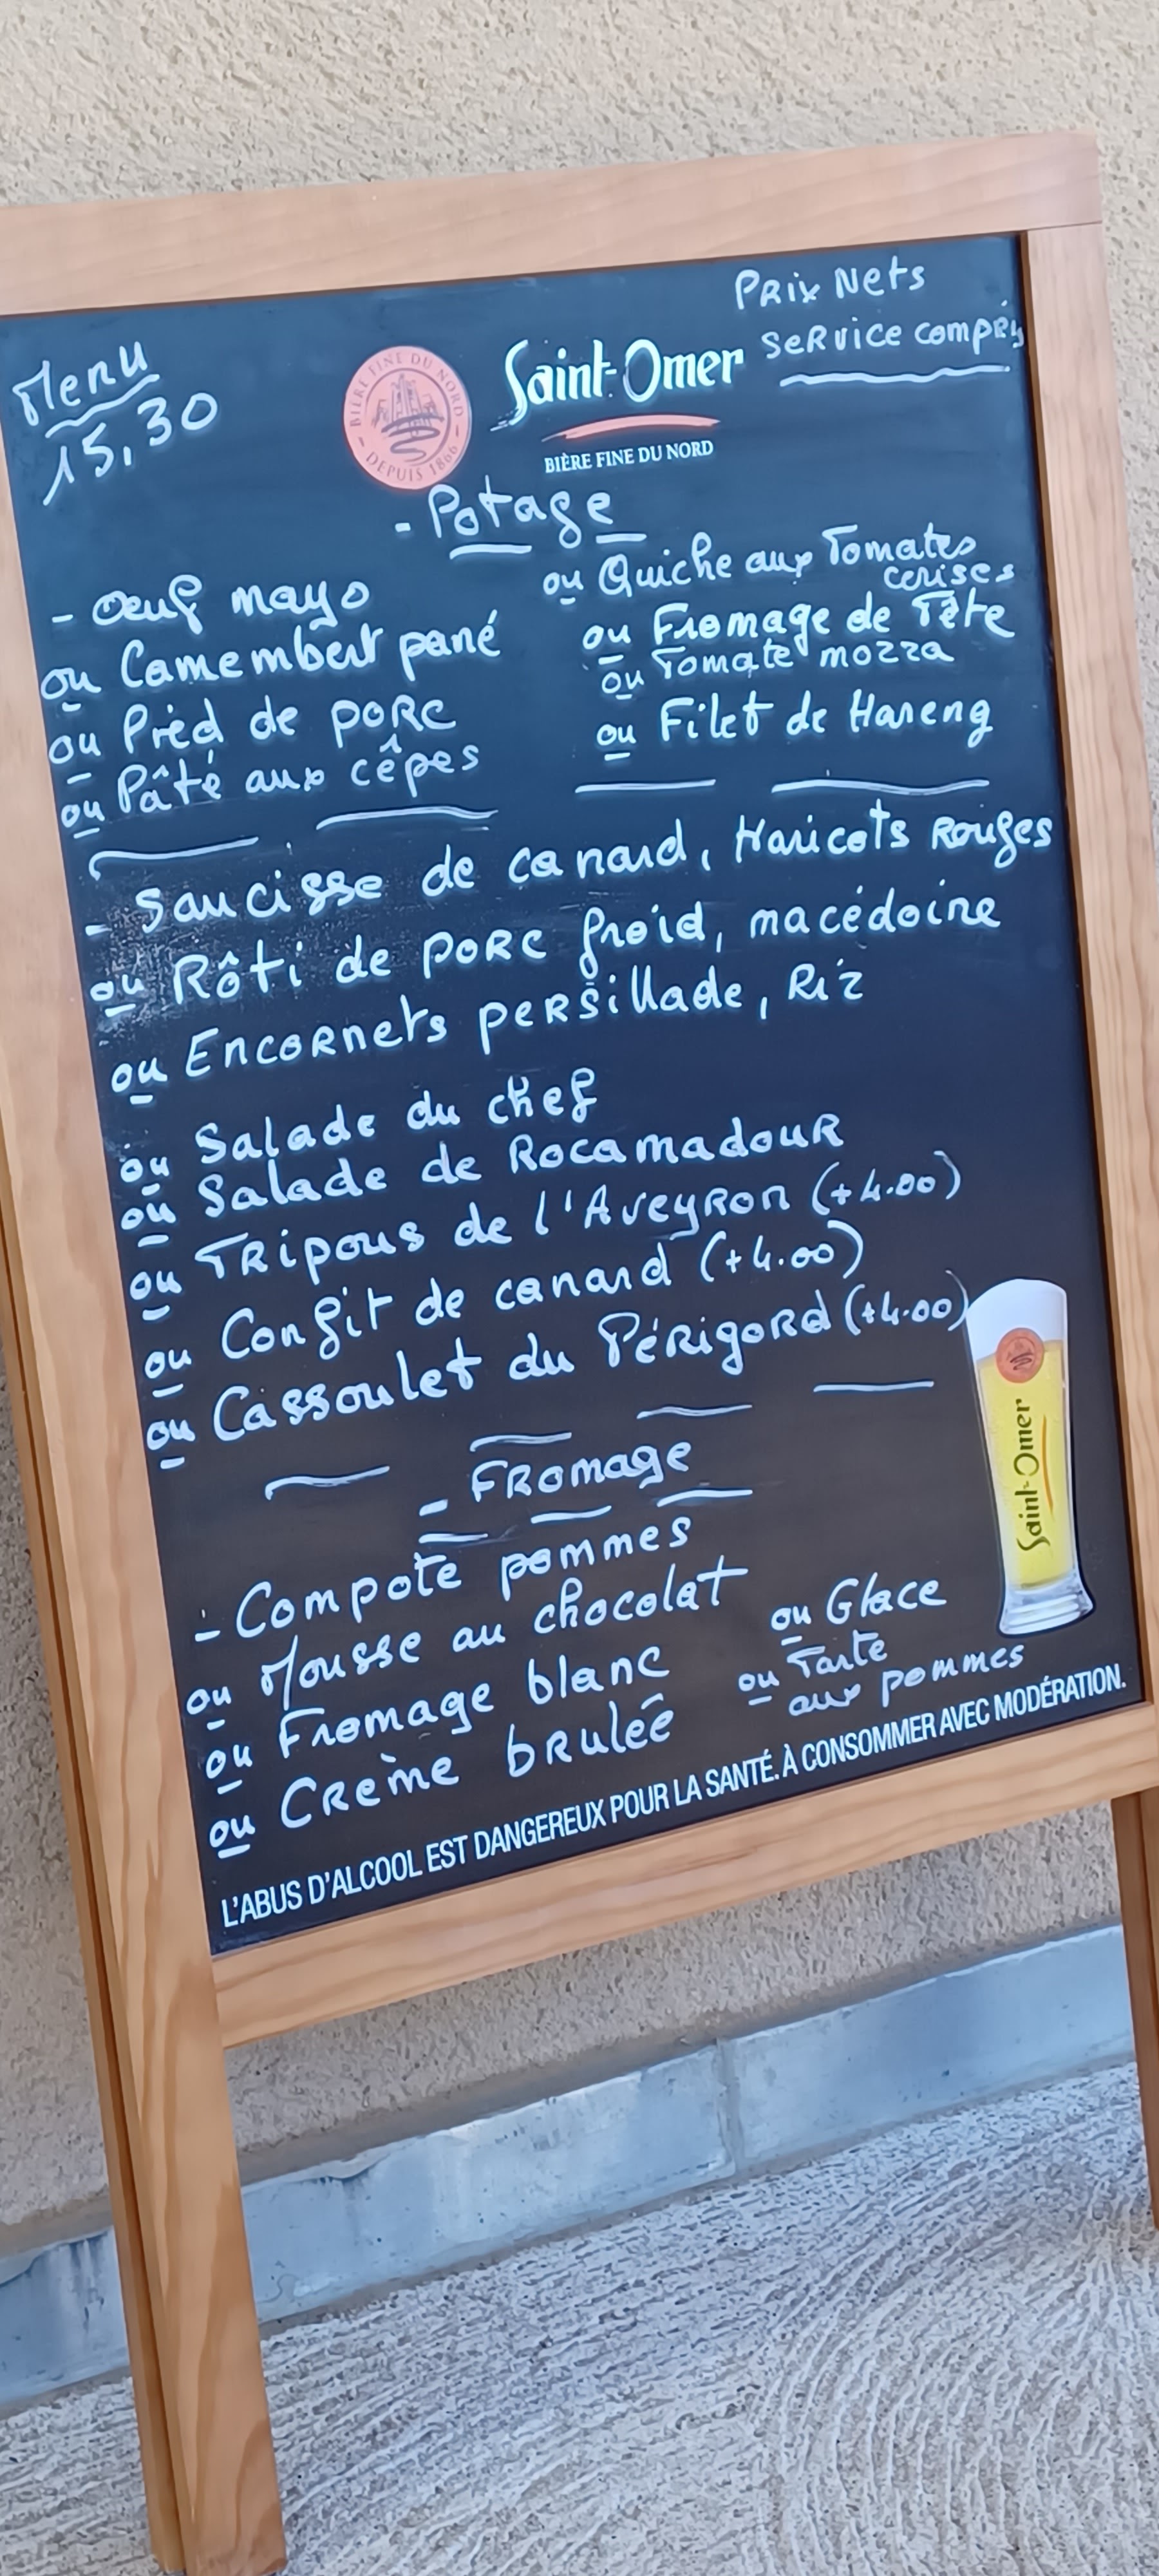 Prix Nets
Service compris
Menu
15,30
BIÈRE FINE DU NORD
DEPUIS 1866
Saint-Omer
BIÈRE FINE DU NORD
- Potage
- Oeuf mayo
ou Camembert pané
ou Pied de porc
ou Pâté aux cêpes
ou Quiche aux Tomates
cerises
ou Fromage de Tête
ou Tomate mozza
ou Filet de Hareng
- Saucisse de canard, Haricots Rouges
ou Rôti de porc froid, macédoine
ou Encornets persillade, Riz
ou Salade du chef
ou Salade de Rocamadour
ou Tripous de l'Aveyron (+4.00)
ou Confit de canard (+4.00)
ou Cassoulet du Périgord (+4.00)
- Fromage
- Compote pommes
ou Mousse au chocolat
ou Fromage blanc
ou Crème brulée
ou Glace
ou Tarte
aux pommes
Saint-Omer
L'ABUS D'ALCOOL EST DANGEREUX POUR LA SANTÉ. À CONSOMMER AVEC MODÉRATION.